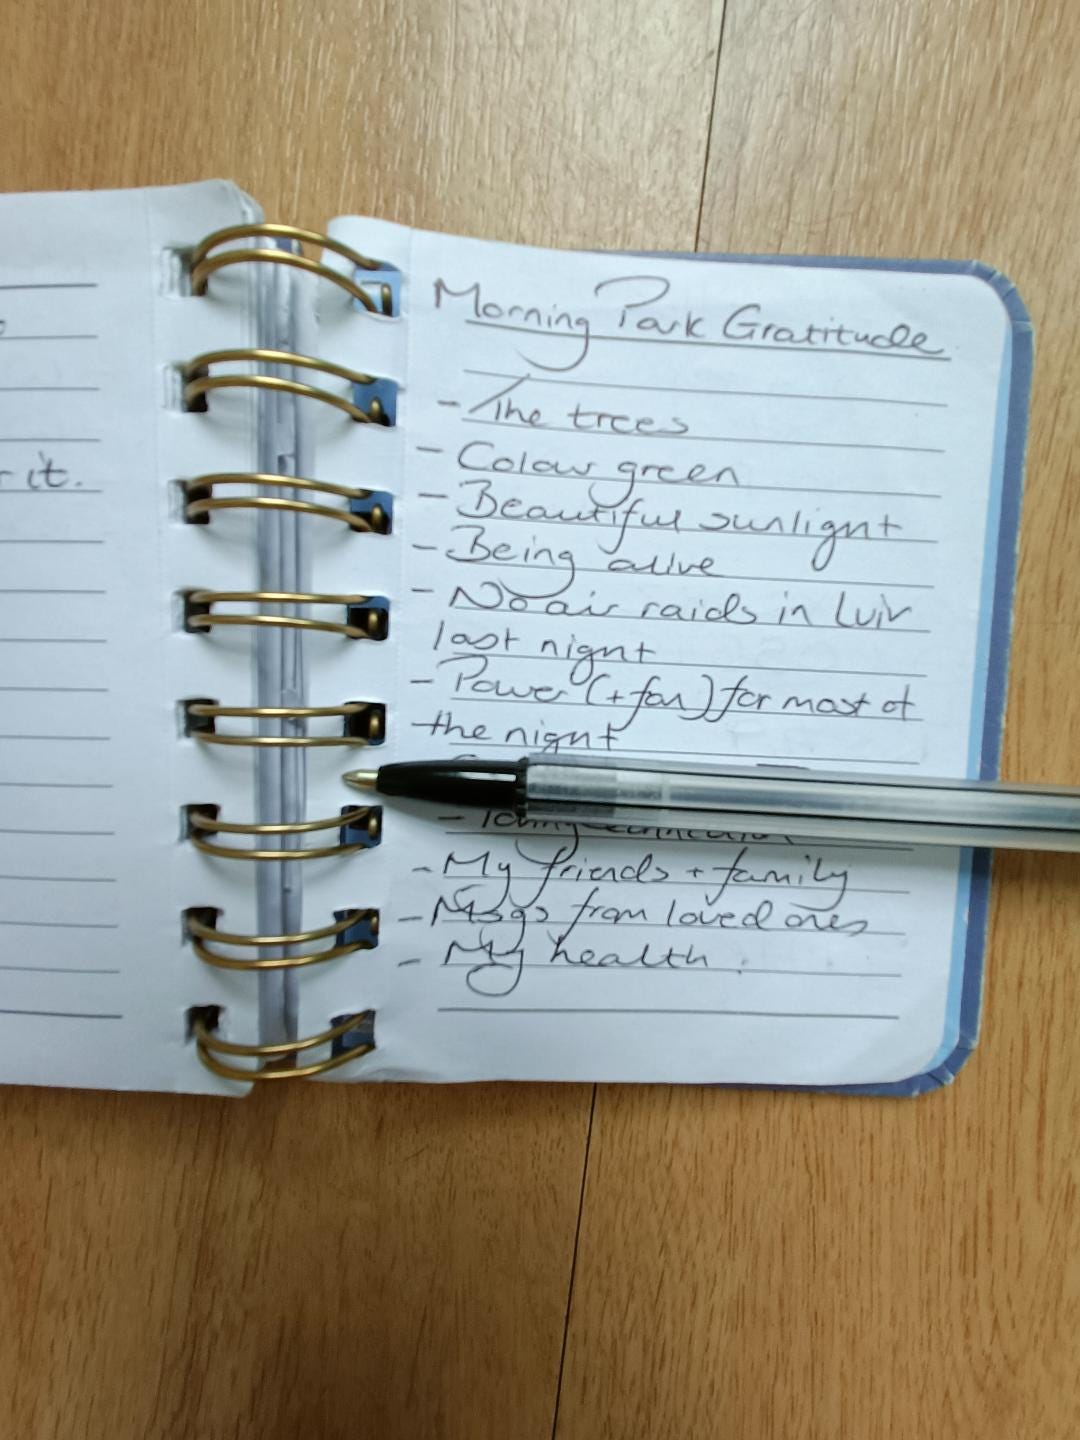 it.
Morning Park Gratitude
- The trees
- Colour green
- Beautiful sunlight
- Being alive
- No air raids in Lviv
last night
- Power (+fan) for most of
the night
- My friends + family
- Msgs from loved ones
- My health.